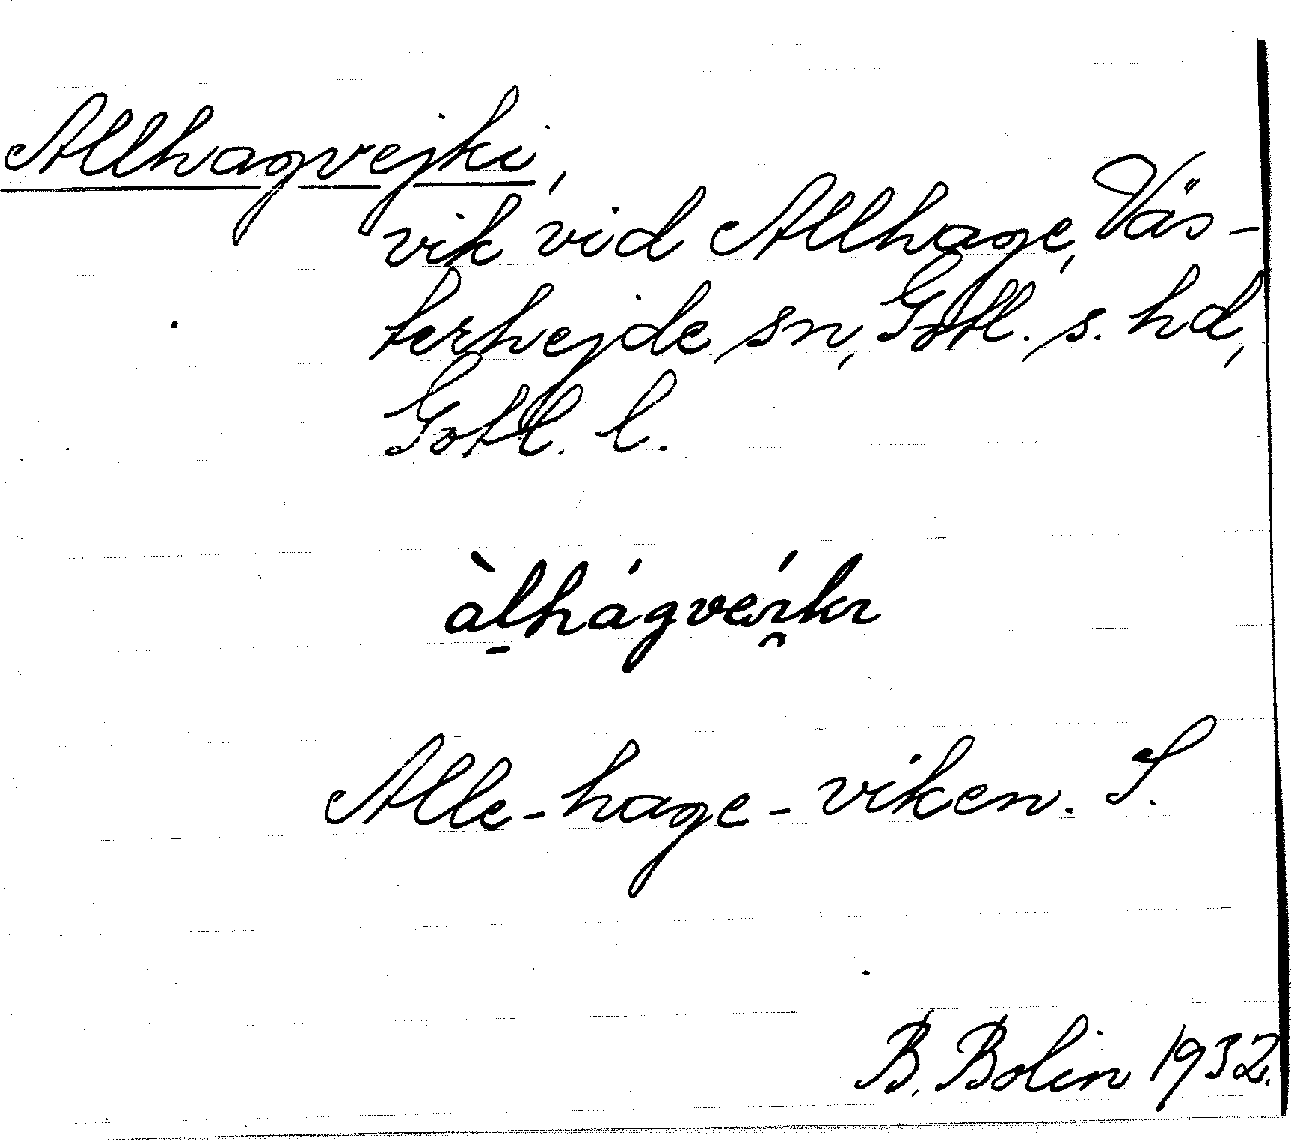 Allhagvejki,
vik vid Allhage, Väs-
terhejde sn, Gotl. s. hd,
Gotl. l.
àl̠hágvéɪ̯kɪ
Alle-hage-viken. S.
B. Bolin 1932.